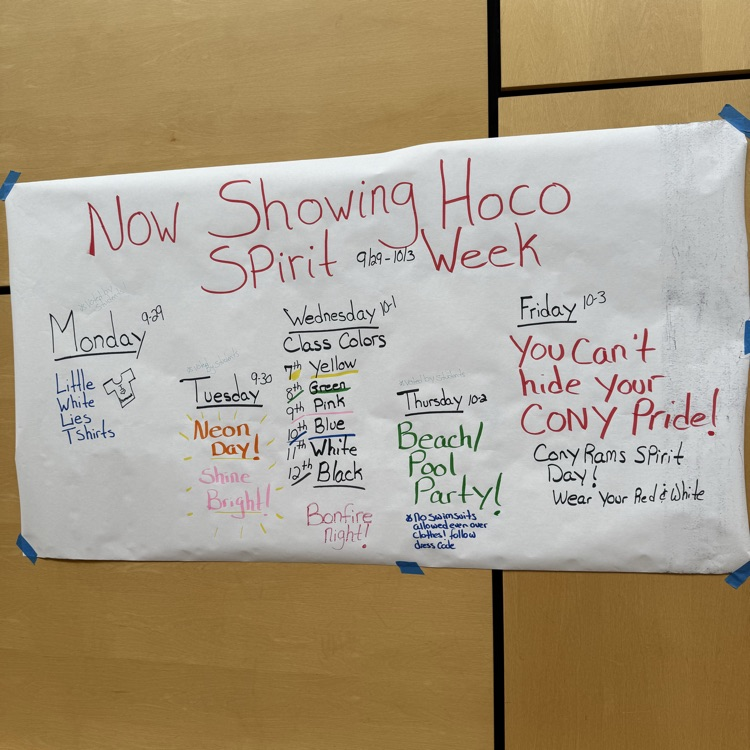 Now Showing Hoco
Spirit 9/29-10/3 Week
Monday 9-29
Little
White
Lies
T Shirts
Tuesday 9-30
Neon
Day!
Shine
Bright!
Wednesday 10-1
Class Colors
7th Yellow
8th Green
9th Pink
10th Blue
11th White
12th Black
Bonfire
night!
*voted by students
Thursday 10-2
Beach/
Pool
Party!
*No swimsuits
allowed even over
clothes! follow
dress code
Friday 10-3
You Can't
hide your
CONY Pride!
Cony Rams Spirit
Day!
Wear Your Red & White